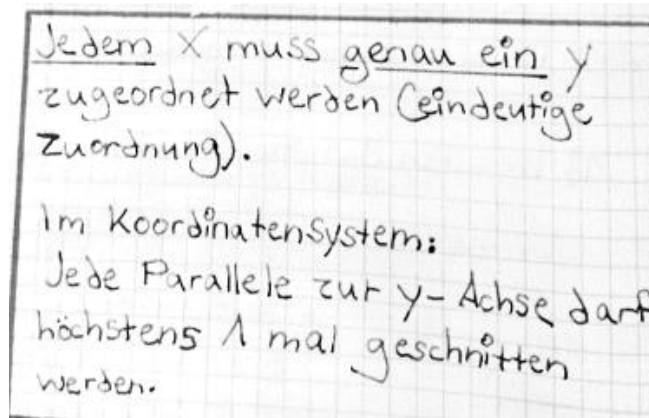 Jedem x muss genau ein y
zugeordnet werden (eindeutige
Zuordnung).
Im Koordinatensystem:
Jede Parallele zur y-Achse darf
höchstens 1 mal geschnitten
werden.